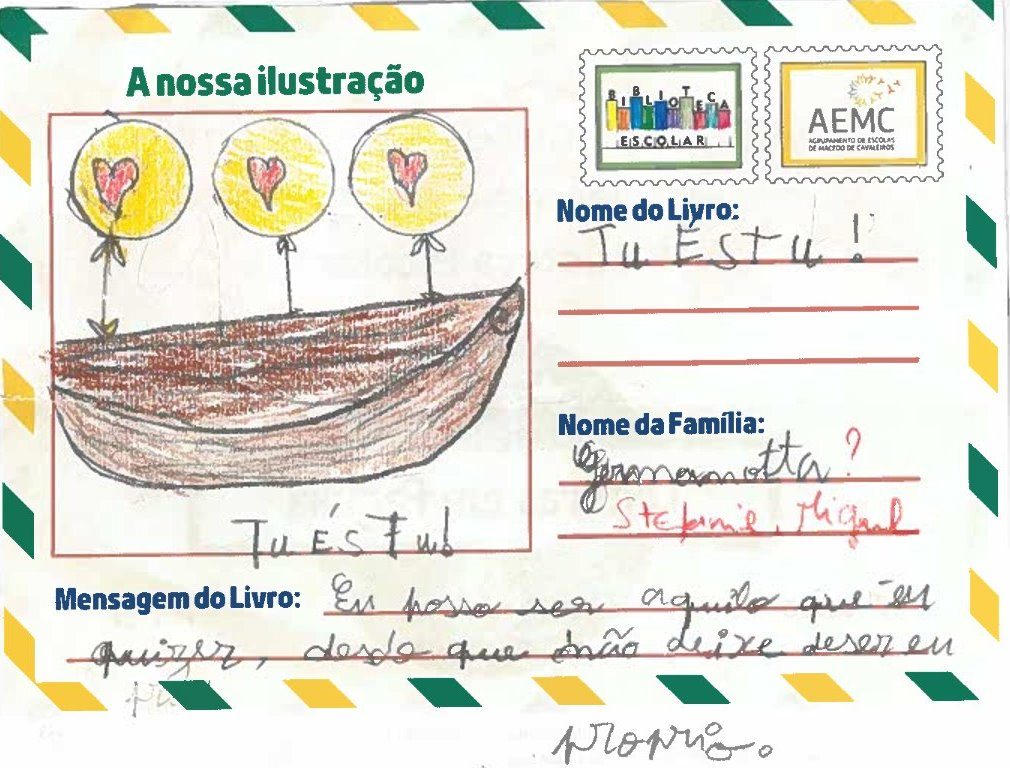 A nossa ilustração
BIBLIOTECA
ESCOLAR
AEMC
AGRUPAMENTO DE ESCOLAS
DE MACEDO DE CAVALEIROS
Nome do Livro:
Tu És Tu!
Nome da Família:
?
Stefanie, Miguel
Tu És Tu!
Mensagem do Livro: Eu posso ser aquilo que eu
quizer, desde que não deixe deser eu
proprio.